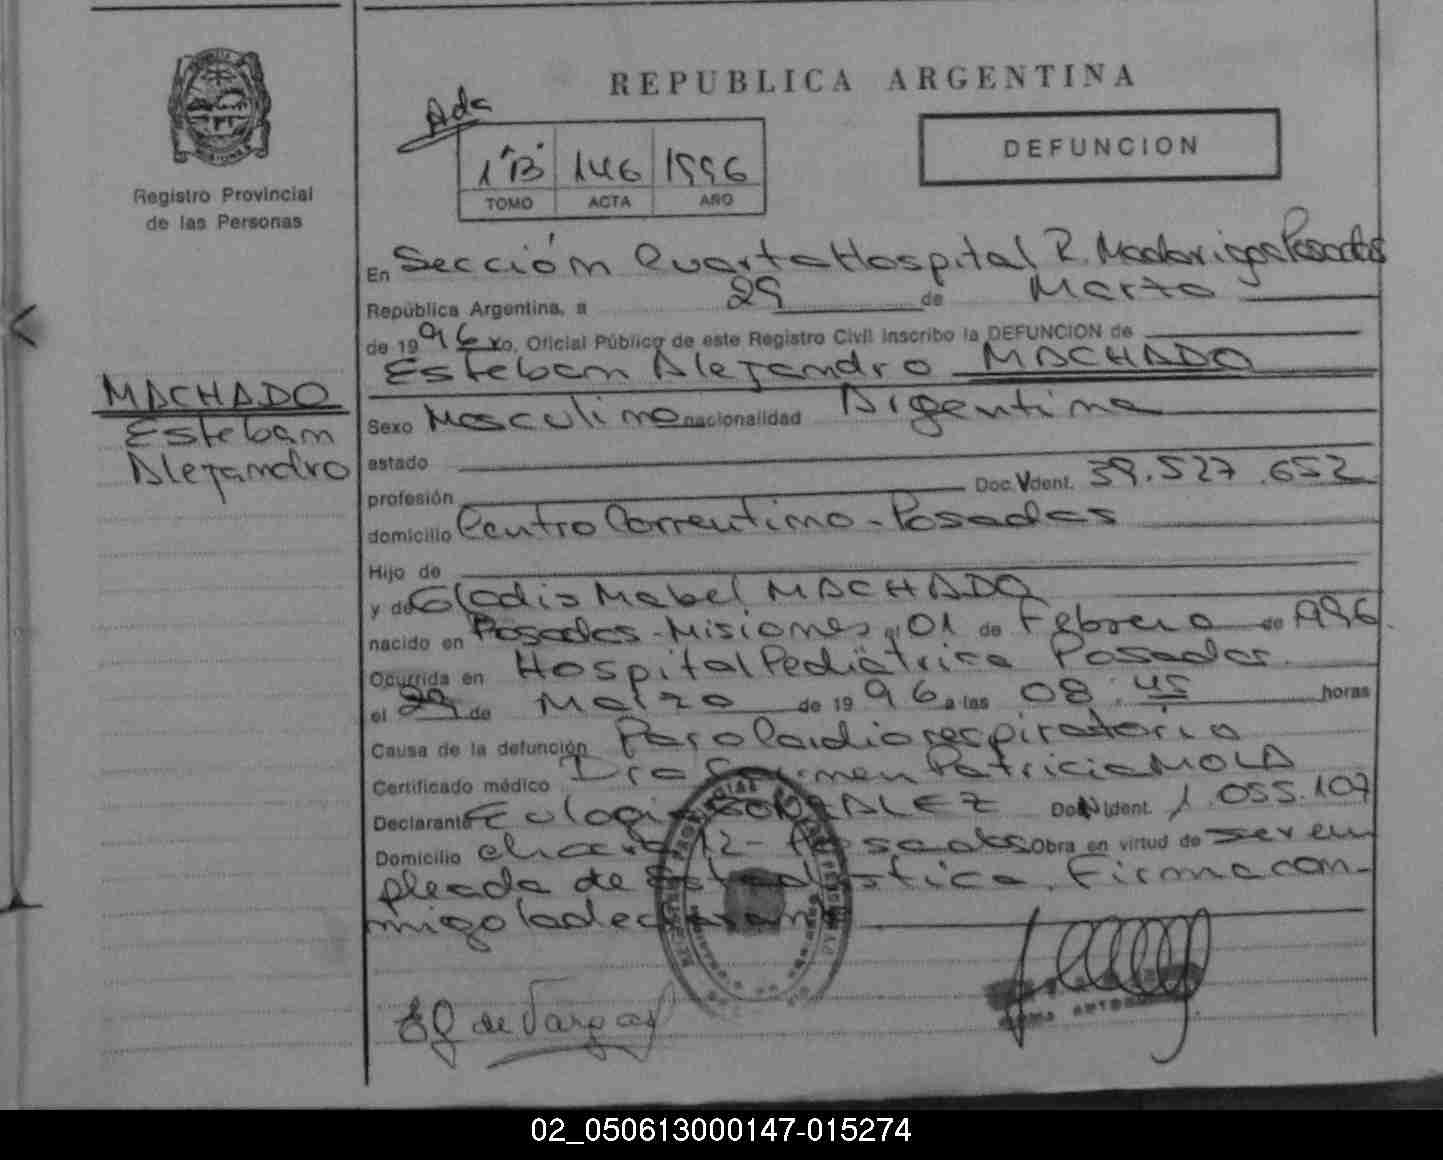 REPUBLICA ARGENTINA
Adc
DEFUNCION
1"B" 146 1996
TOMO ACTA AÑO
Registro Provincial
de las Personas
En Sección Cuarta Hospital R. Madariaga Posadas
República Argentina, a 29 de Marzo
de 1996 yo, Oficial Público de este Registro Civil inscribo la DEFUNCION de
Esteban Alejandro MACHADO
MACHADO
Esteban
Alejandro
Sexo Masculino nacionalidad Argentina
estado
profesión Doc. Ident. 39.527.652
domicilio Centro Correntino - Posadas
Hijo de
y de Gladis Mabel MACHADO
nacido en Posadas - Misiones el 01 de Febrero de 1996.
Ocurrida en Hospital Pediátrico Posadas.
el 29 de Marzo de 1996 a las 08:45 horas
Causa de la defunción Paro Cardiorespiratorio
Certificado médico Dra Carmen Patricia MOLA
Declarante Eulogia Doc. Ident. 1.055.107
Domicilio chacra 12 - Posadas Obra en virtud de ser em
pleada de Estadística. Firma con-
migo la declarante
EG de Vargas
02_050613000147-015274